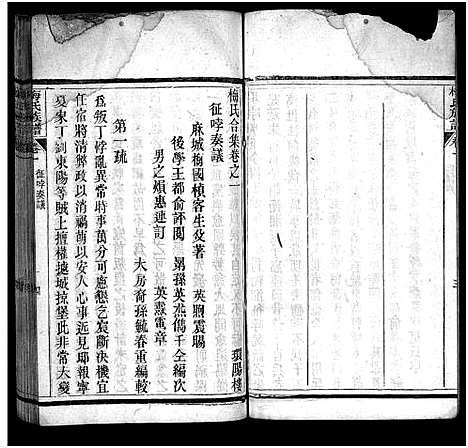 梅氏合集卷之一
征哱奏議
麻城梅國楨客生父著
英煦震賜
後學王都俞評閱
晜孫英杰儁千全編次
男之熉惠連訂
英黰電章
環陽樓
大房裔孫毓春重編較
第一疏
爲叛丁悖亂異常時事萬分可慮懇乞宸斷決機宜
任宿將清弊政以消禍萌以安人心事近見邸報寧
夏家丁劉東陽等賊上擅權據城掠堡此非常大變
梅氏族譜
卷一
征哱奏議